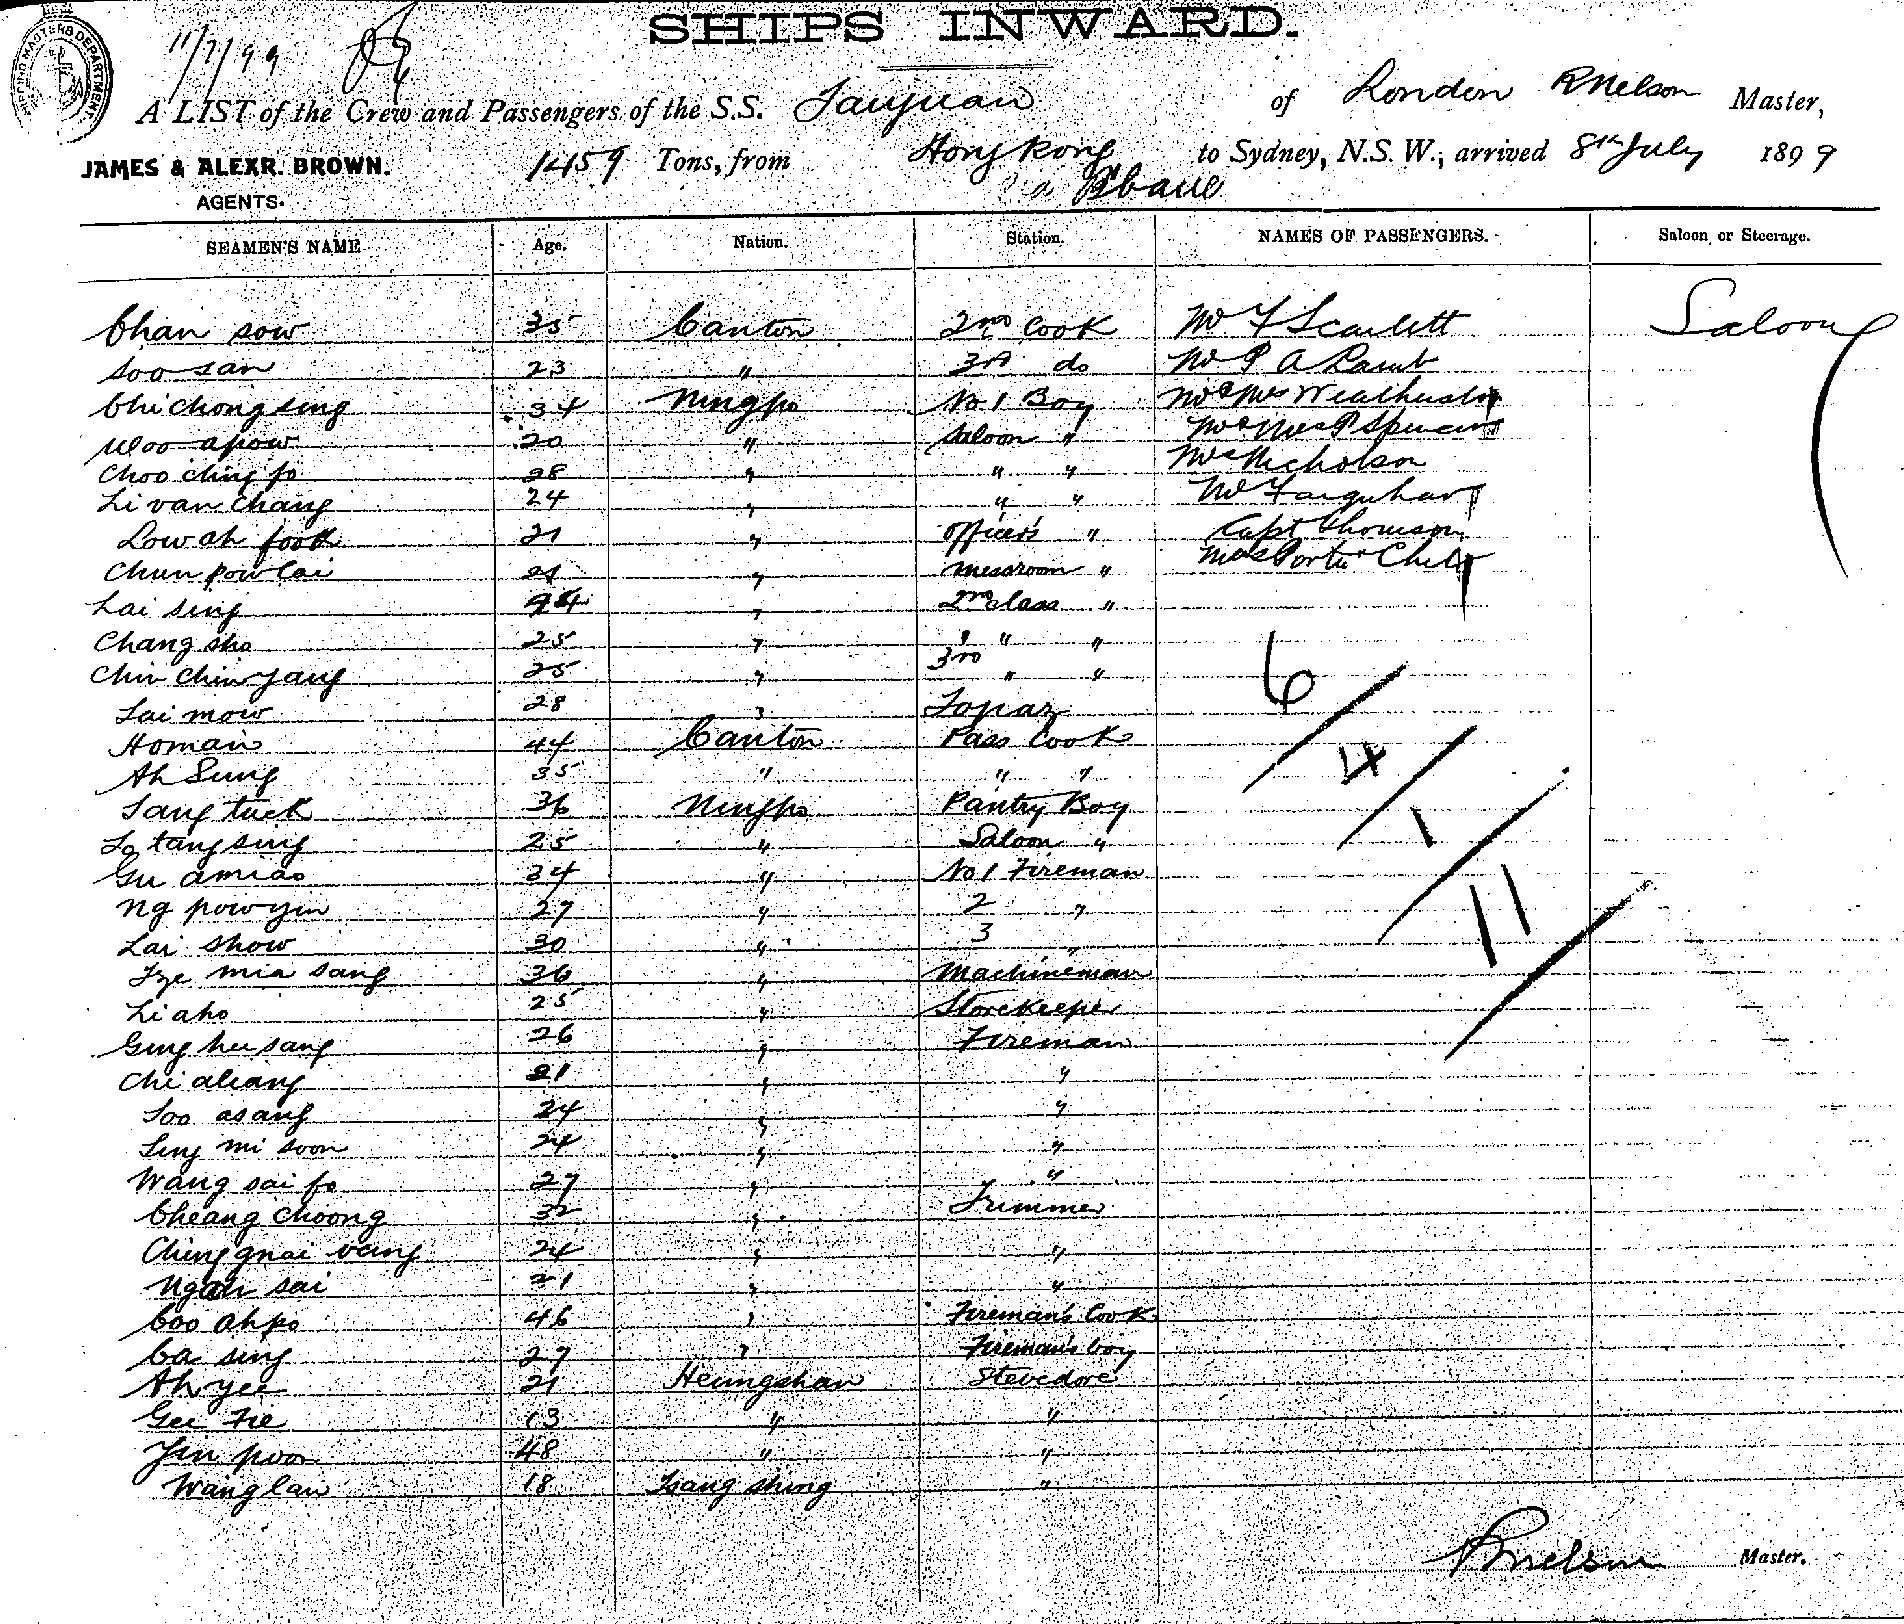 SHIPS INWARD.
11/7/99
SHIPPING MASTERS DEPARTMENT
A LIST of the Crew and Passengers of the S.S. Taiyuan of London RNelson Master,
JAMES & ALEXR. BROWN. 1459 Tons, from Hong Kong to Sydney, N.S.W., arrived 8th July 1899
AGENTS. Bbane
SEAMEN'S NAME Age. Nation. Station. NAMES OF PASSENGERS. Saloon or Steerage.
Chan sow 35 Canton 2nd Cook Mr F Scarlett Saloon
Soo san 23 " 3rd do Mr P A Lamb
Chi chong sing 34 Ningpo No 1 Boy
Woo apow 20 " Saloon "
Choo ching fo 28 " " " Nicholson
Li van chang 24 " " " Mr Farquhar
Low ah fook 21 " officer's " Capt Thomson
Chun pow lai 21 " messroom " Porter Child
Lai sing 24 " 2nd class "
Chang sho 25 " " " "
Chin chin yang 25 " 3rd " "
Lai mow 28 " Topaz
Homan 44 Canton Pass Cook
Ah Sung 35 " " "
Sang tuck 36 Ningpo Pantry Boy
Lo tang sing 25 " Saloon "
Gu amiao 34 " No 1 Fireman
Ng pow yin 27 " 2 "
Lai show 30 " 3 "
Tze mia sang 36 " Machineman
Li aho 25 " Storekeeper
Gung hu sang 26 " Fireman
Chi aliang 21 " "
Soo asang 24 " "
Ling mi soon 24 " "
Wang sai fo 27 " "
Cheang choong 32 " Trimmer
Ching gnai vang 24 " "
Ngan sai 21 " "
Coo ah po 46 " Fireman's Cook
Ca sing 27 " Fireman's boy
Ah yee 21 Heungshan Stevedore
Gee Fie 13 " "
Yun poon 48 " "
Wang lau 18 Tsang shing "
6/4/1/11/
RNelson Master.